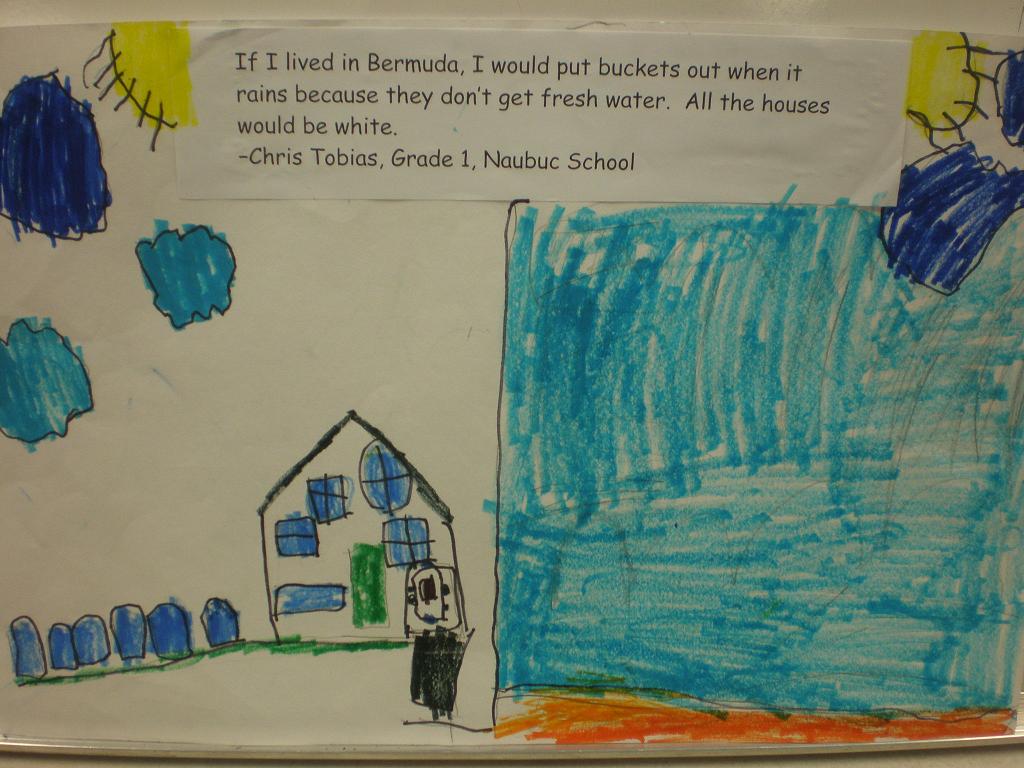 If I lived in Bermuda, I would put buckets out when it
rains because they don't get fresh water.  All the houses
would be white.
-Chris Tobias, Grade 1, Naubuc School